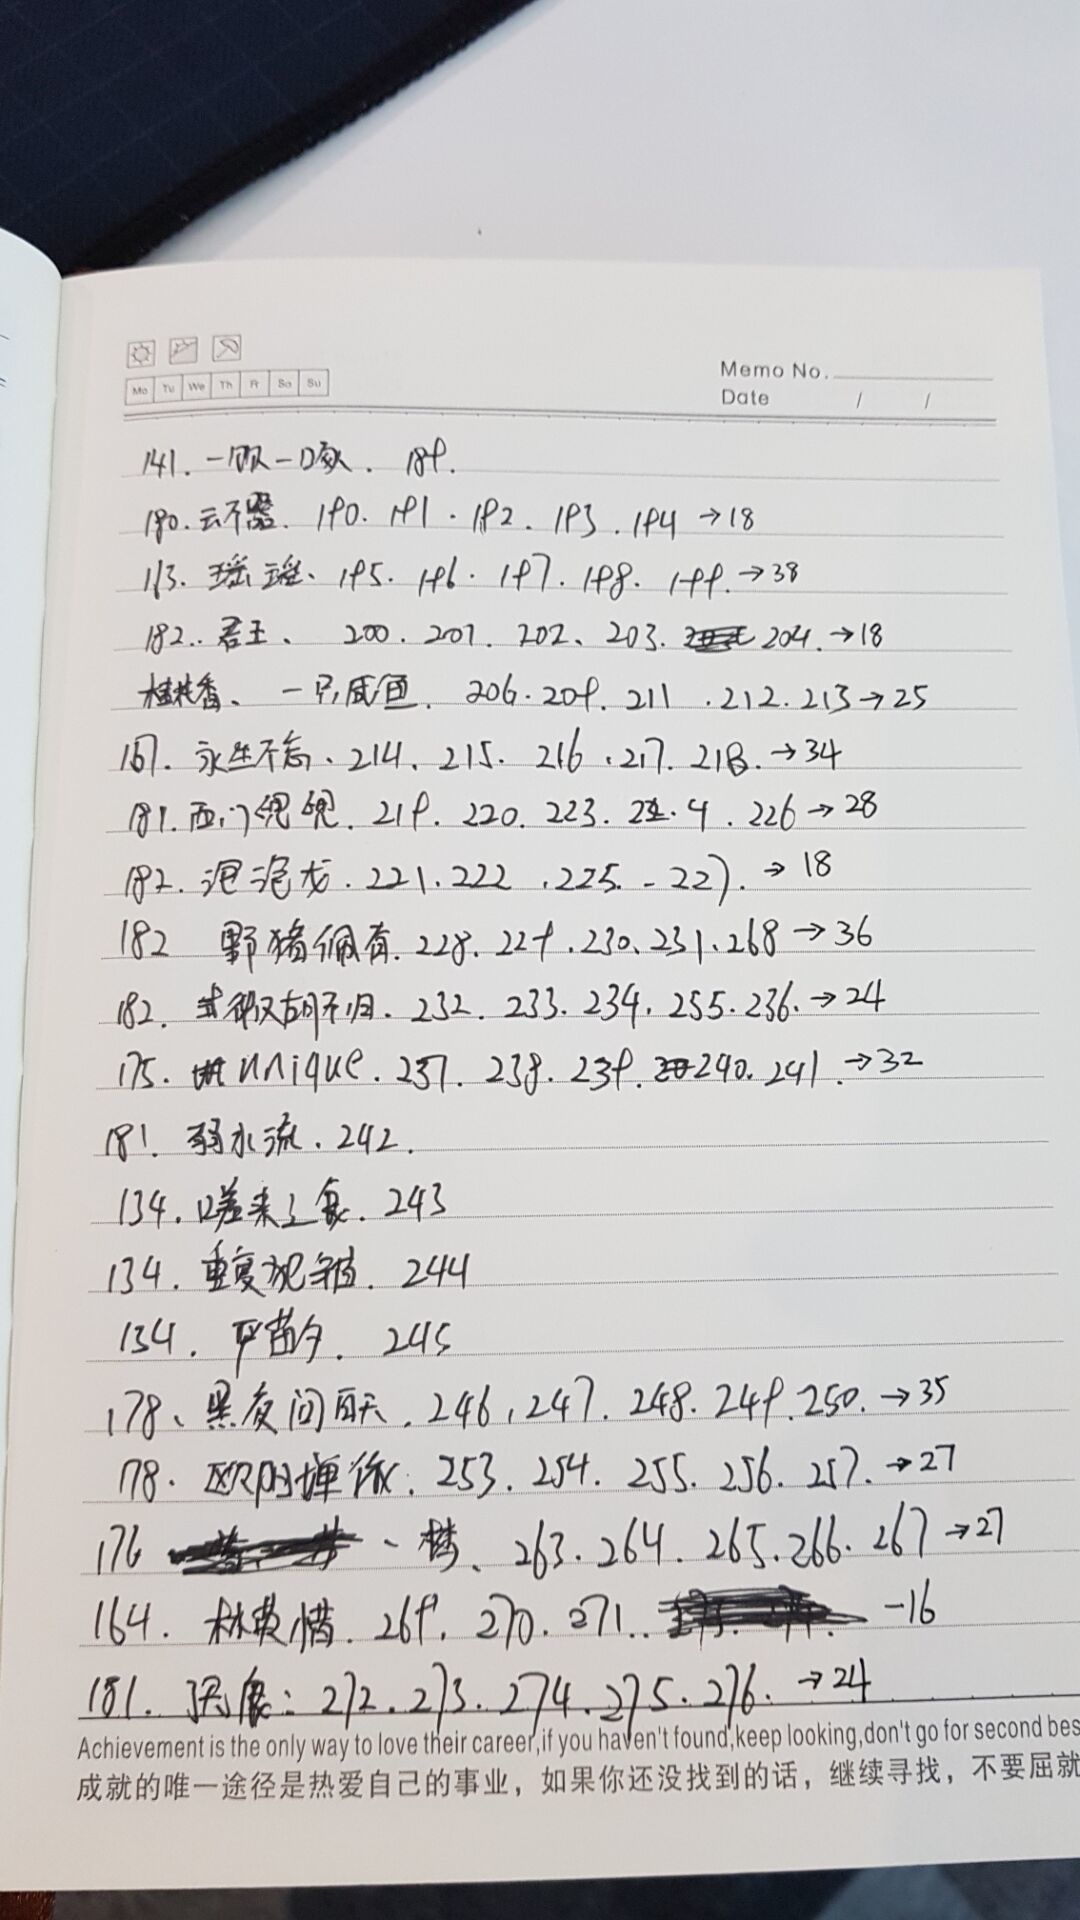 Mo Tu We Th Fr Sa Su
Memo No.
Date / /
141. 一饮一啄. 189.
190. 云不器. 190. 191. 192. 193. 194 →18
113. 瑶瑶、195. 196. 197. 198. 199. →38
182.. 君王、 200. 201. 202、203. 204. →18
桂花香、 一只咸鱼. 206. 209. 211 .212. 213 → 25
167. 永生不忘、214、215. 216 .217. 218. →34
181. 西门 219. 220. 223. 4. 226 → 28
182. 泡泡龙. 221. 222 .225. - 227. → 18
182 野猪佩奇. 228. 229. 230. 231. 268 → 36
182. 式微胡不归. 232. 233. 234. 255. 236. → 24
175. unique. 237. 238. 239. 240. 241. →32
181. 弱水流. 242.
134. 嗟来之食. 243
134. 重复犯. 244
134. 苗夕. 245
178、黑夜问白天. 246. 247. 248. 249. 250. →35
178. 欧阳. 253. 254. 255. 256. 257. → 27
176 、梦、263. 264. 265. 266. 267 → 27
164. 林惜. 269. 270. 271.. -16
181. 食: 272. 273. 274. 275. 276. → 24
Achievement is the only way to love their career,if you haven't found,keep looking,don't go for second bes
成就的唯一途径是热爱自己的事业，如果你还没找到的话，继续寻找，不要屈就